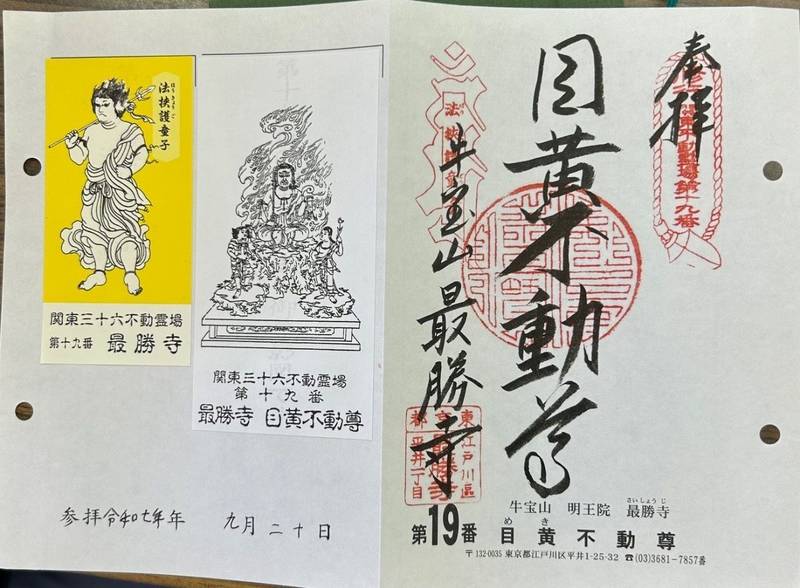 法挟護童子
ほうきょうご
関東三十六不動霊場
第十九番 最勝寺
関東三十六不動霊場
第十九番
最勝寺 目黄不動尊
参拝令和七年年 九月二十日
奉拝
関東不動霊場第十九番
目黄不動尊
法挟護童子
牛宝山最勝寺
東京都
江戸川區
平井一丁目
最勝寺
牛宝山 明王院 最勝寺
さいしょうじ
第19番 目黄不動尊
めき
〒132-0035 東京都江戸川区平井1-25-32 ☎(03)3681-7857番